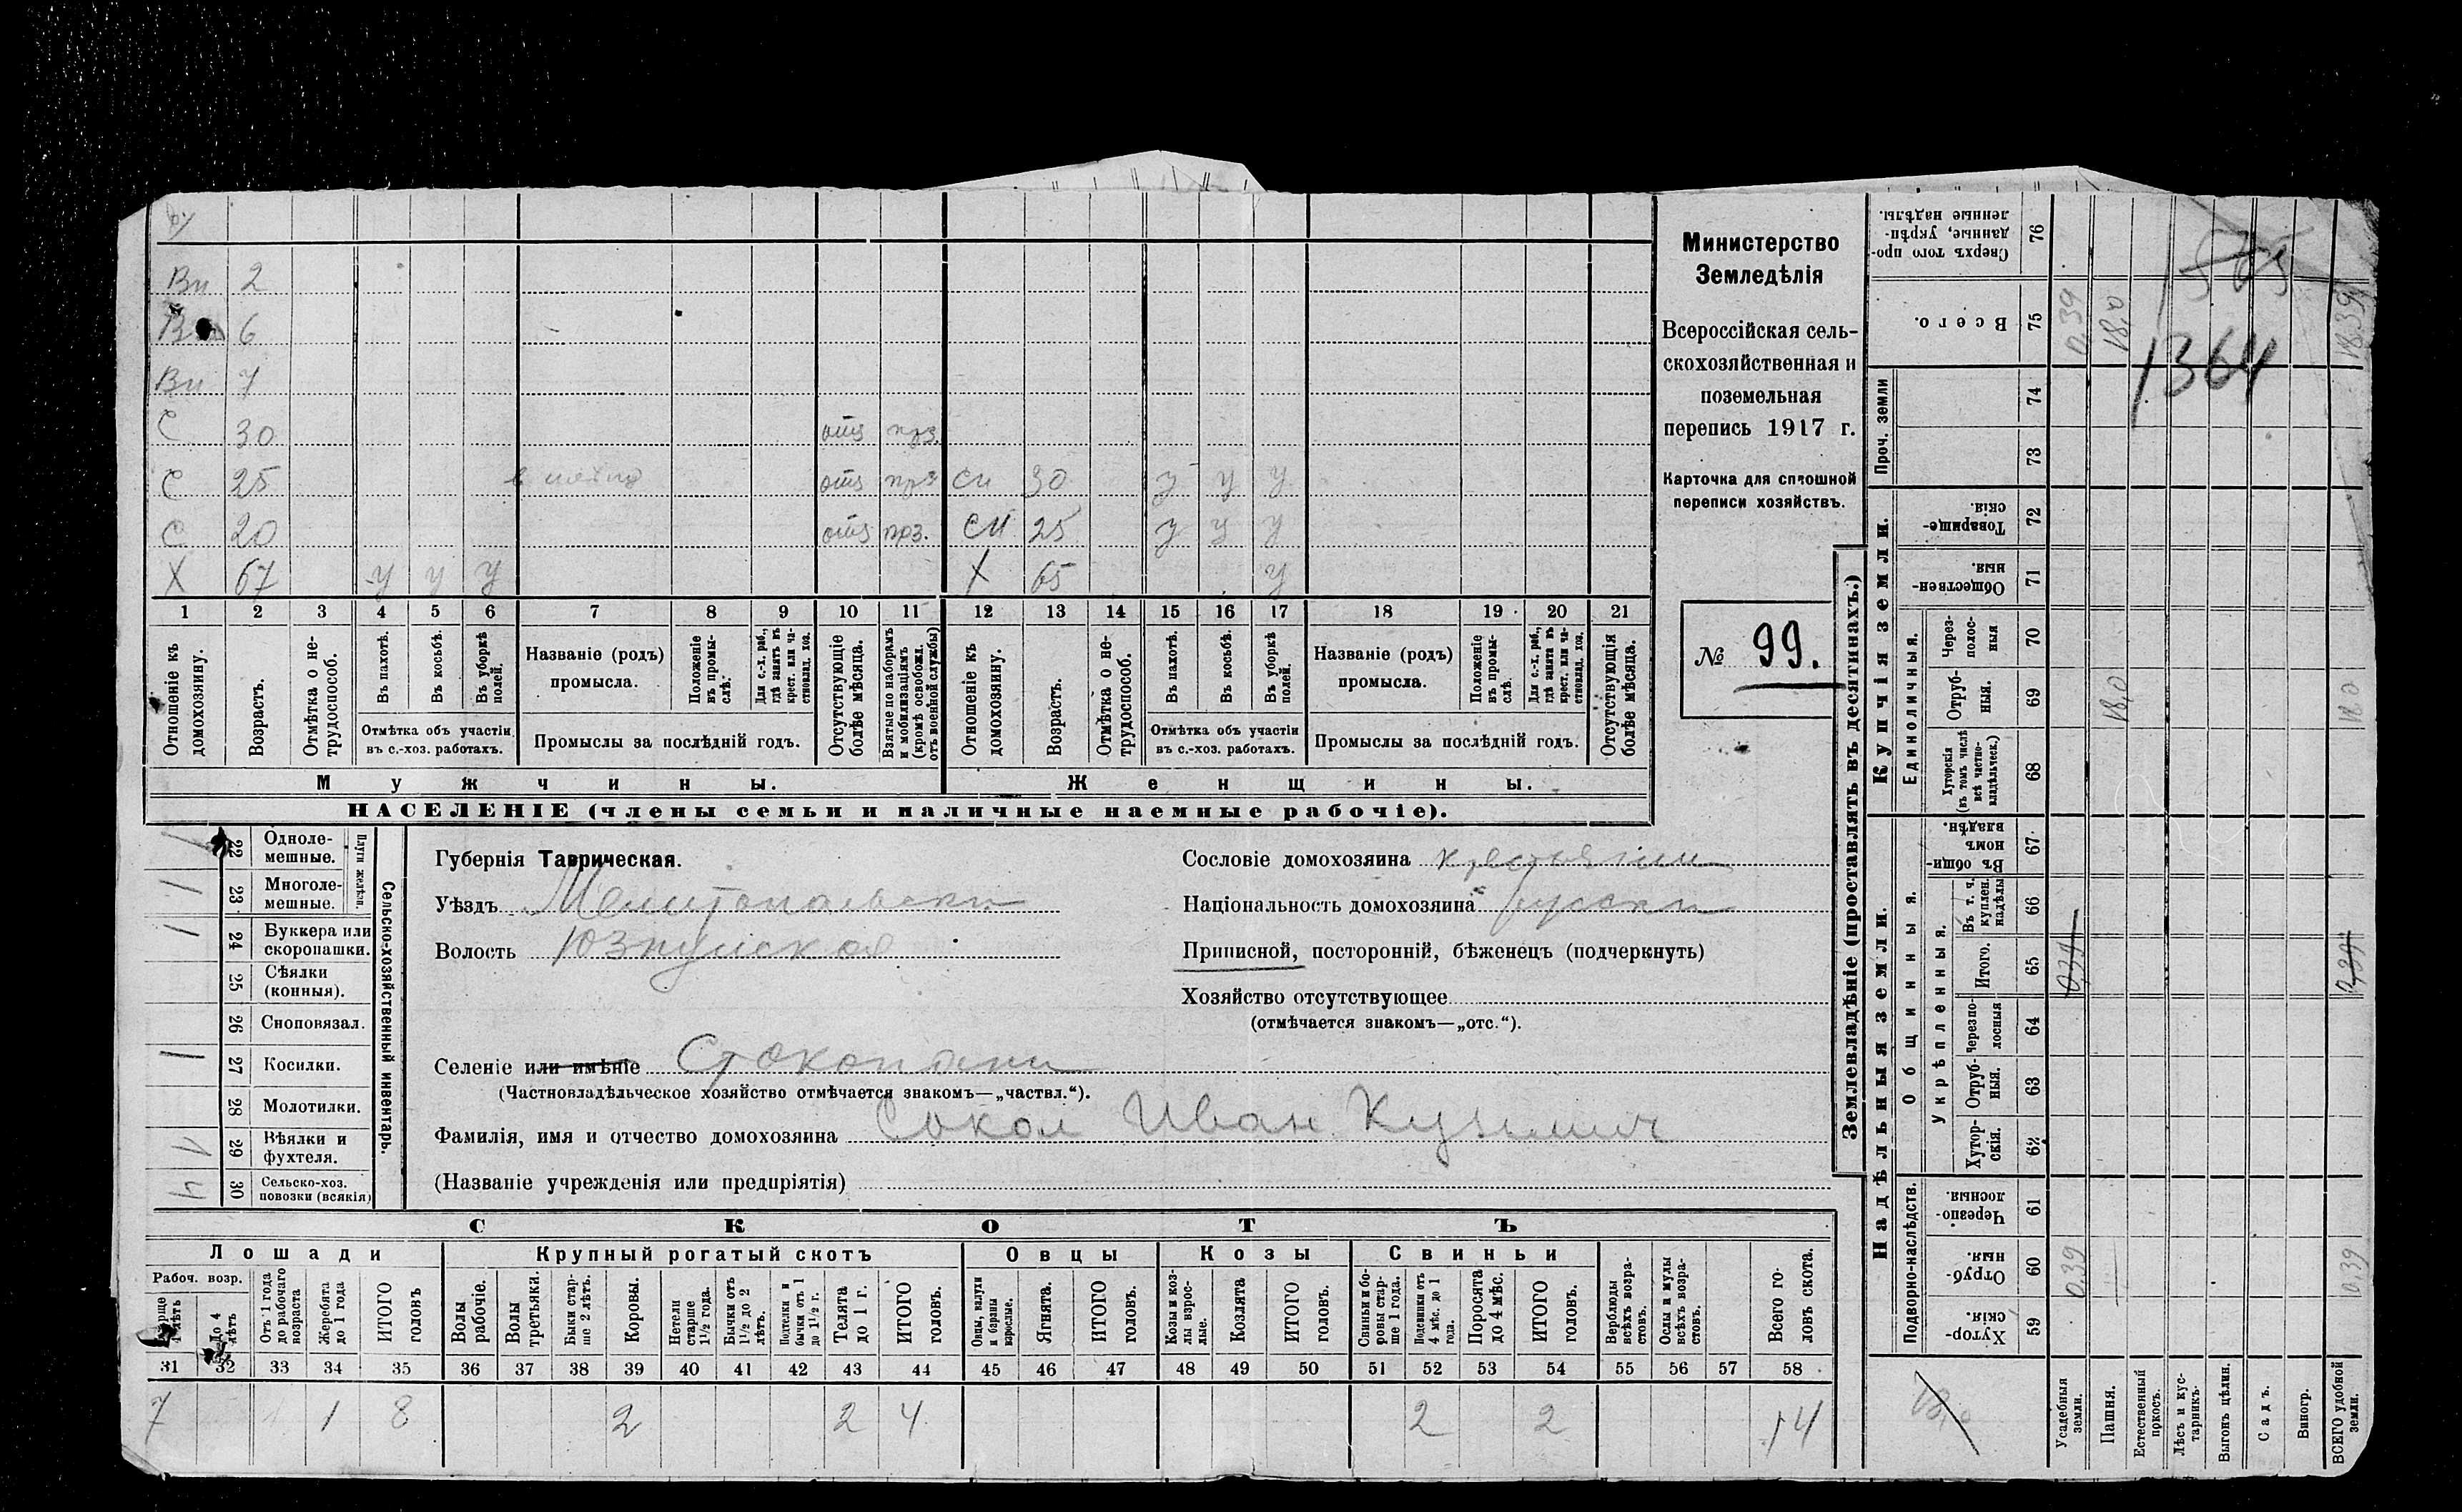 Вн 2
6
Вн 7
С 30 отс прз.
С 25 отс прз сн 30 у у у
С 20 отс прз. сн 25 у у у
Х 67 у у у Х 65 у
1 2 3 4 5 6 7 8 9 10 11 12 13 14 15 16 17 18 19 20 21
Отношеніе къ домохозяину.
Возрастъ.
Отмѣтка о нетрудоспособ.
Въ пахотѣ.
Въ косьбѣ.
Въ уборкѣ полей.
Отмѣтка объ участіи
въ с.-хоз. работахъ.
Названіе (родъ)
промысла.
Положеніе въ промыслѣ.
Для с.-х. раб., гдѣ занятъ въ крест. или частновлад. хоз.
Промыслы за послѣдній годъ.
Отсутствующіе болѣе мѣсяца.
Взятые по наборамъ и мобилизаціямъ (кромѣ освобожд. отъ военной службы)
Отношеніе къ домохозяину.
Возрастъ.
Отмѣтка о нетрудоспособ.
Въ пахотѣ.
Въ косьбѣ.
Въ уборкѣ полей.
Отмѣтка объ участіи
въ с.-хоз. работахъ.
Названіе (родъ)
промысла.
Положеніе въ промыслѣ.
Для с.-х. раб., гдѣ занята въ крест. или частновлад. хоз.
Промыслы за послѣдній годъ.
Отсутствующія болѣе мѣсяца.
Мужчины. Женщины.
НАСЕЛЕНІЕ (члены семьи и наличные наемные рабочіе).
Министерство
Земледѣлія
Всероссійская сель-
скохозяйственная и
поземельная
перепись 1917 г.
Карточка для сплошной
переписи хозяйствъ.
№ 99.
Сельско-хозяйственный инвентарь.
Плуги желѣзн.
22 Одноле-
мешные.
1 23 Многоле-
мешные.
1 24 Буккера или
скоропашки.
25 Сѣялки
(конныя).
26 Сноповязал.
1 27 Косилки.
28 Молотилки.
1 29 Вѣялки и
фухтеля.
4 30 Сельско-хоз.
повозки (всякія)
Губернія Таврическая.
Уѣздъ Мелитопольски
Волость Юзкуйская
Селеніе или имѣніе Стокопани
(Частновладѣльческое хозяйство отмѣчается знакомъ—„частвл.“).
Фамилія, имя и отчество домохозяина Сокол Иван Кузьмич
(Названіе учрежденія или предпріятія)
Сословіе домохозяина крестьянин
Національность домохозяина русски
Приписной, посторонній, бѣженецъ (подчеркнуть)
Хозяйство отсутствующее
(отмѣчается знакомъ—„отс.“).
СКОТЪ
Лошади Крупный рогатый скотъ Овцы Козы Свиньи
Рабоч. возр.
До 4 лѣтъ
Отъ 1 года до рабочаго возраста
Жеребята до 1 года
ИТОГО головъ
Волы рабочіе.
Волы третьяки.
Быки старше 2 лѣтъ.
Коровы.
Нетели старше 1½ года.
Бычки отъ 1½ до 2 лѣтъ.
Подтелки и бычки отъ 1 до 1½ г.
Телята до 1 г.
ИТОГО головъ.
Овцы, валухи и бараны взрослые.
Ягнята.
ИТОГО головъ.
Козы и козлы взрослые.
Козлята
ИТОГО головъ.
Свиньи и боровы старше 1 года.
Подсвинки отъ 4 мѣс. до 1 года.
Поросята до 4 мѣс.
ИТОГО головъ.
Верблюды всѣхъ возрастовъ.
Ослы и мулы всѣхъ возрастовъ.
Всего головъ скота.
31 32 33 34 35 36 37 38 39 40 41 42 43 44 45 46 47 48 49 50 51 52 53 54 55 56 57 58
7 1 8 2 2 4 2 2 14
Землевладѣніе (проставлять въ десятинахъ.)
Надѣльныя земли. Купчія земли. Проч. земли
Подворно-наслѣдств.
Общинныя.
Укрѣпленныя.
Единоличныя.
59 Хуторскія.
60 Отрубныя. 0,39 0,39
61 Черезполосныя.
62 Хуторскія.
63 Отрубныя.
64 Черезполосныя
65 Итого. 0,39 0,39
66 Въ т. ч. куплен. надѣлы
67 Въ общинномъ владѣн.
68 Хуторскія (въ томъ числѣ всѣ частновладѣльческ.)
69 Отрубныя. 18,0 18,0
70 Черезполосныя
71 Общественныя.
72 Товарищескія.
73
74
75 Всего. 0,39 18,0 18,39
76 Сверхъ того проданные, укрѣпленные надѣлы.
1364
Усадебныя земли.
Пашня.
Естественный
Лѣсъ и кустарникъ.
Выгонъ цѣлин.
Садъ.
Виногр.
ВСЕГО удобной земли.